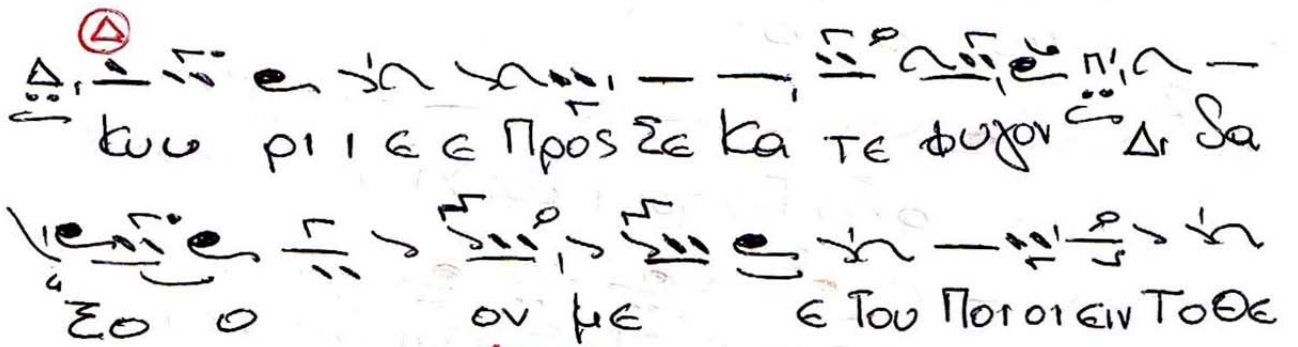 Δ
Κυυ ρι ι ε ε Προς Σε Κα τε φυγον Δι δα
ξο ο ον με ε Του Ποι οι ειν Το Θε